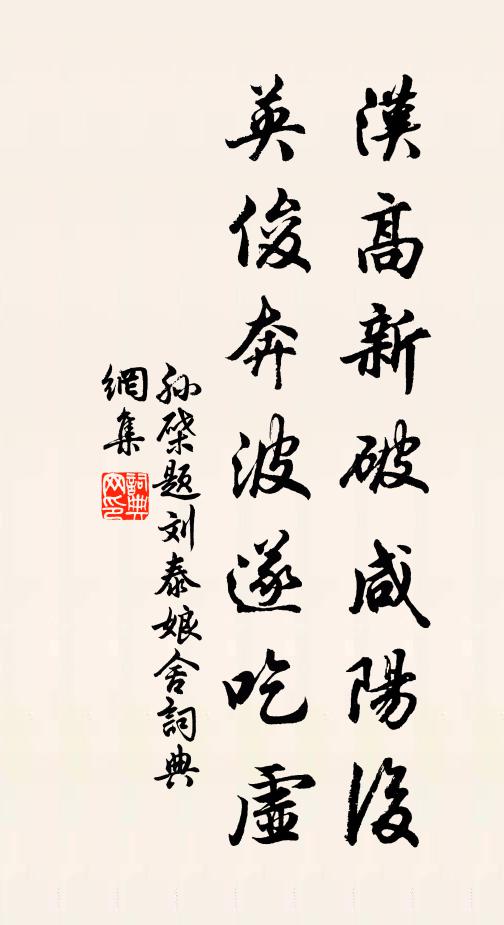 漢高新破咸陽後
英俊奔波遂吃虛
孙棨题刘泰娘舍詞典
網集
詞典
网印